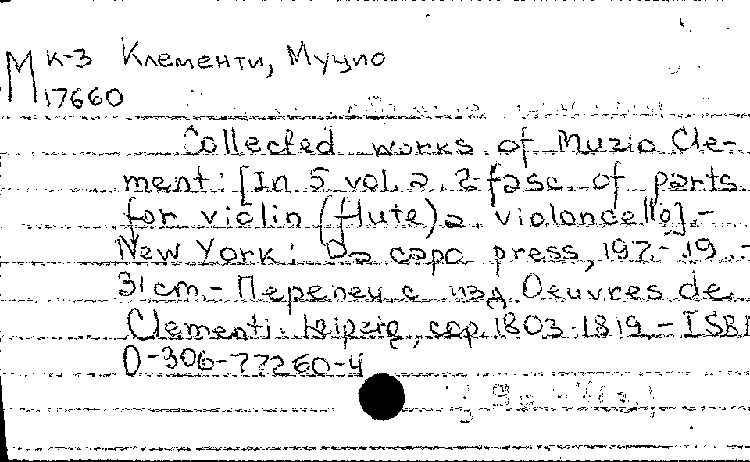 М К-3 Клементи, Муцио
17660
Collected works of Muzio Cle-
ment: [In 5 vol. a. 2 fasc. of parts
for violin (flute) a. violoncello].-
New York: Da capo press, 197.-19..-
31cm.- Перепеч. с изд. Oeuvres de
Clementi. Leipzig, cop. 1803-1819.- ISBN
0-306-77260-4